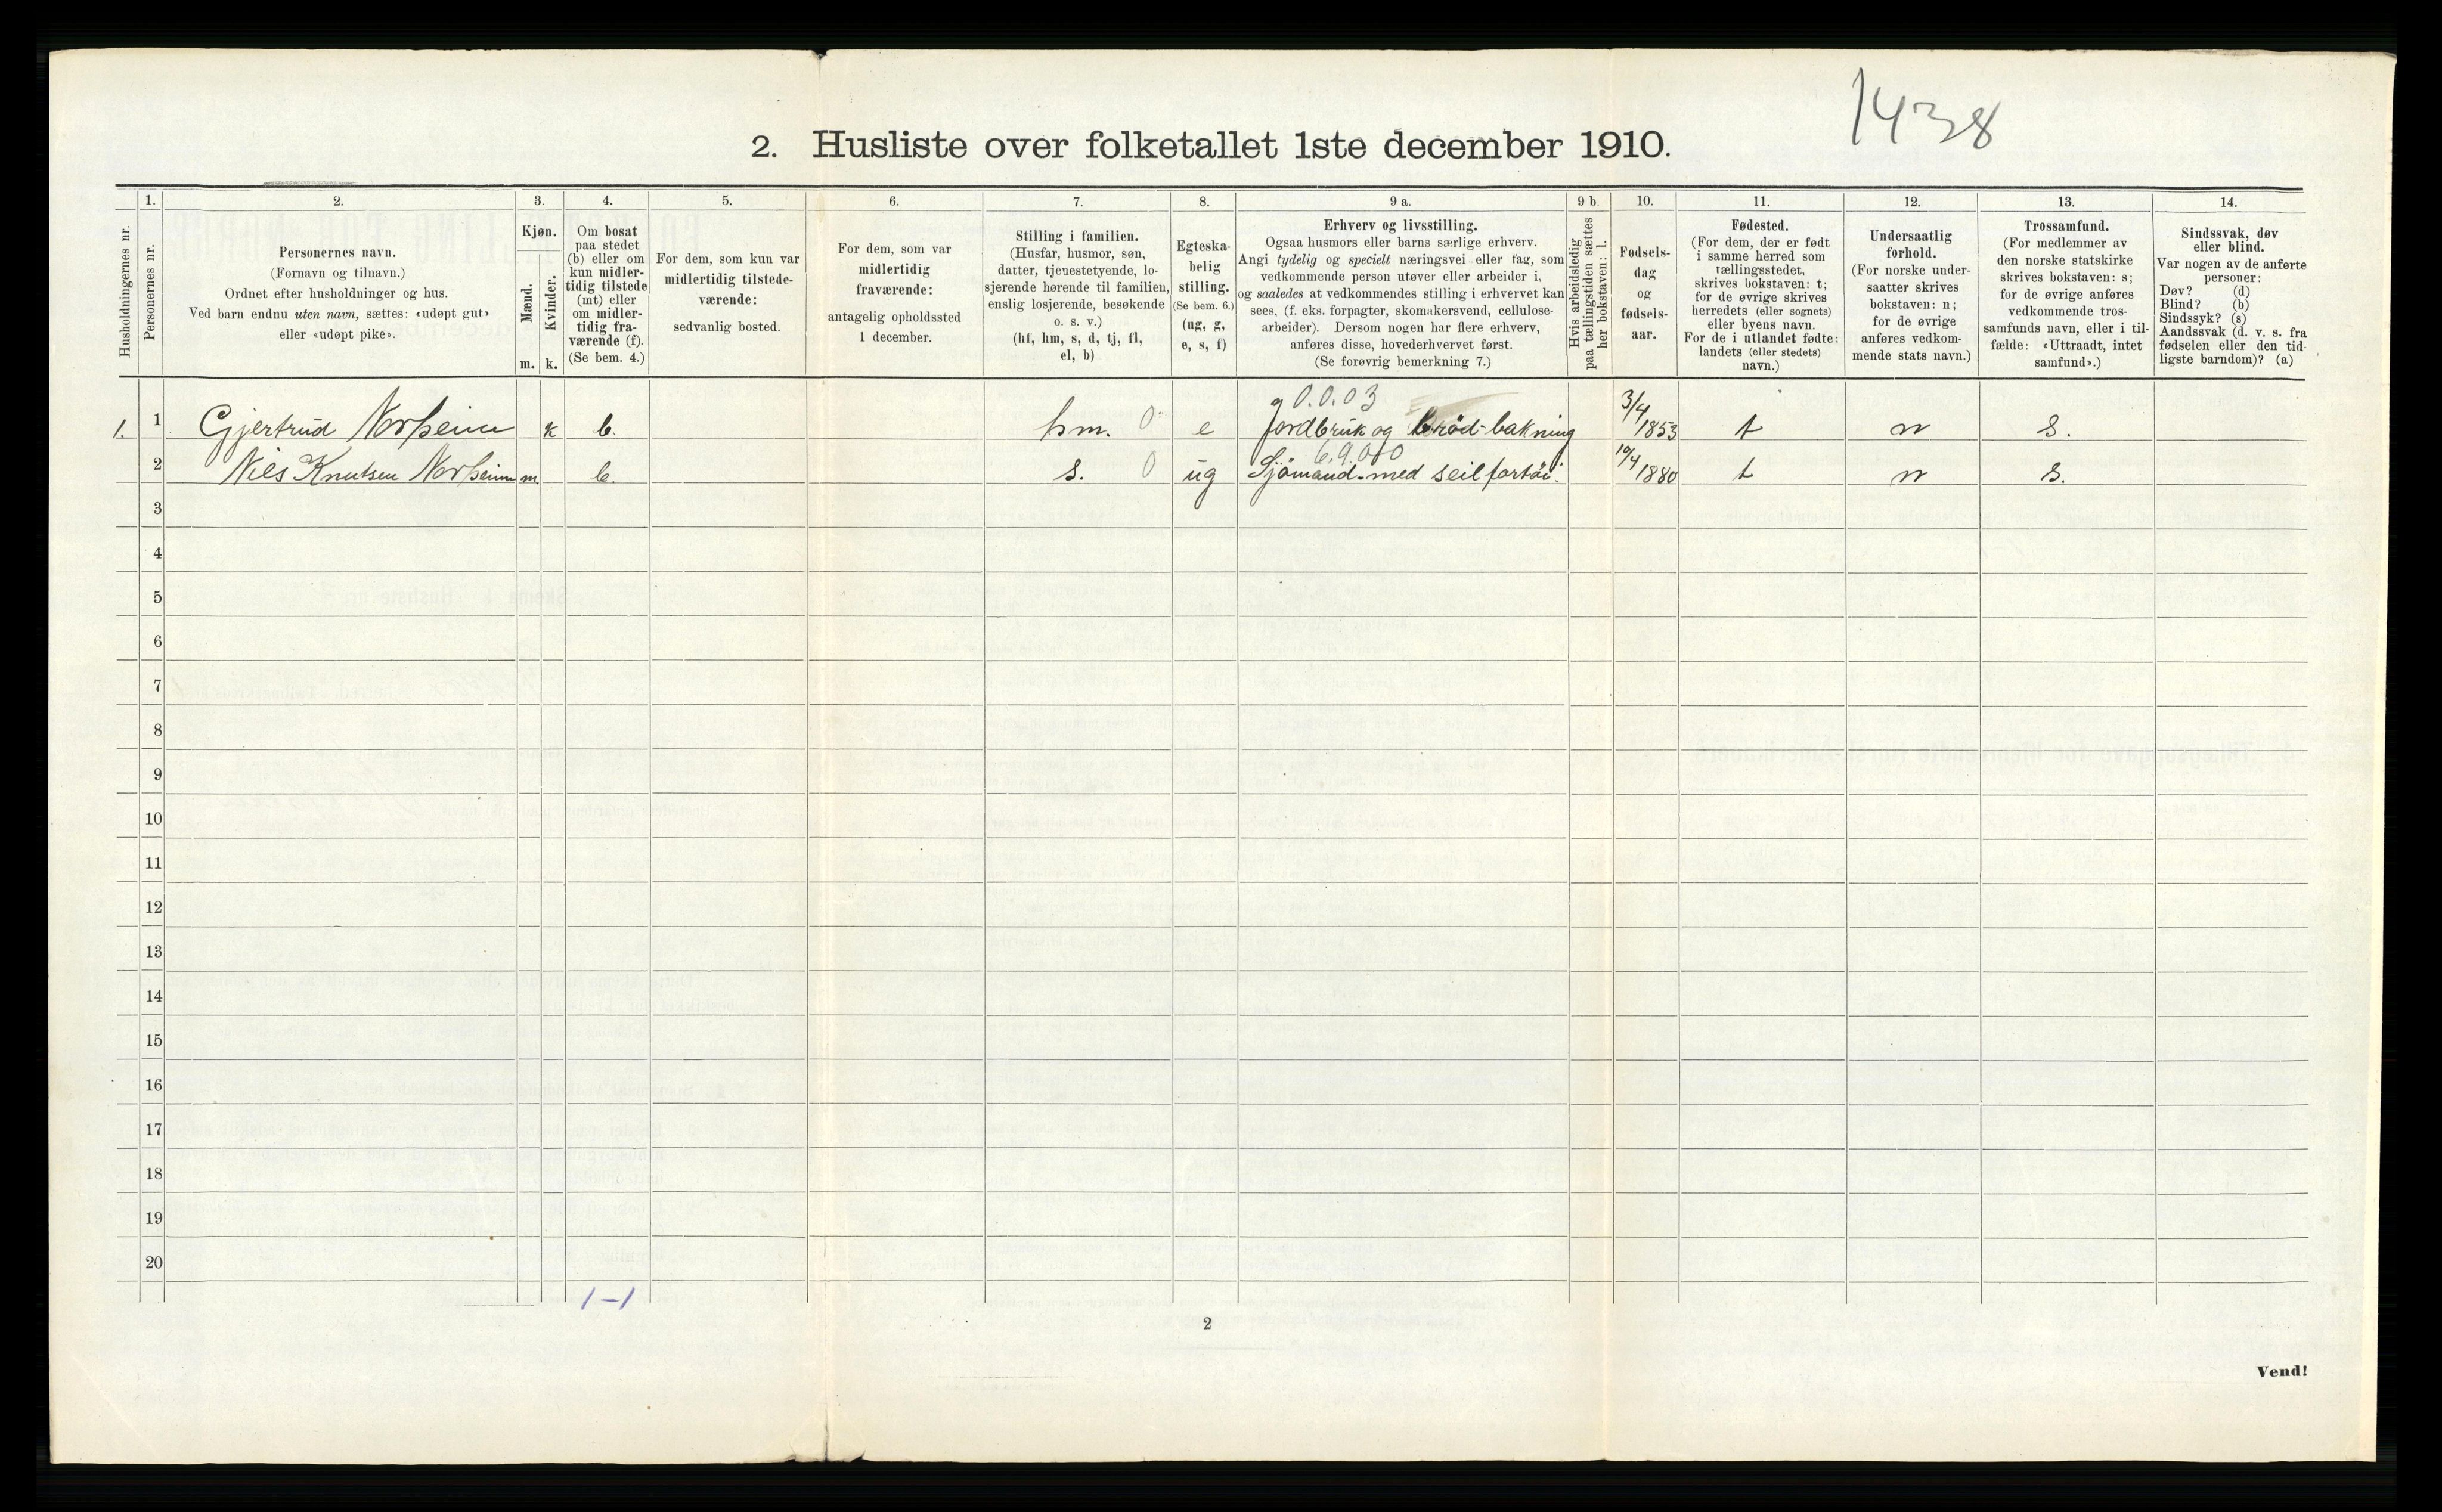 1438
2. Husliste over folketallet 1ste december 1910.
Husholdningernes nr.
1.
Personernes nr.
2.
Personernes navn.
(Fornavn og tilnavn.)
Ordnet efter husholdninger og hus.
Ved barn endnu uten navn, sættes: «udøpt gut»
eller «udøpt pike».
3.
Kjøn.
Mænd.
Kvinder.
m. k.
4.
Om bosat
paa stedet
(b) eller om
kun midler-
tidig tilstede
(mt) eller
om midler-
tidig fra-
værende (f).
(Se bem. 4.)
5.
For dem, som kun var
midlertidig tilstede-
værende:
sedvanlig bosted.
6.
For dem, som var
midlertidig
fraværende:
antagelig opholdssted
1 december.
7.
Stilling i familien.
(Husfar, husmor, søn,
datter, tjenestetyende, lo-
sjerende hørende til familien,
enslig losjerende, besøkende
o. s. v.)
(hf, hm, s, d, tj, fl,
el, b)
8.
Egteska-
belig
stilling.
(Se bem. 6.)
(ug, g,
e, s, f)
9 a.
Erhverv og livsstilling.
Ogsaa husmors eller barns særlige erhverv.
Angi tydelig og specielt næringsvei eller fag, som
vedkommende person utøver eller arbeider i,
og saaledes at vedkommendes stilling i erhvervet kan
sees, (f. eks. forpagter, skomakersvend, cellulose-
arbeider). Dersom nogen har flere erhverv,
anføres disse, hovederhvervet først.
(Se forøvrig bemerkning 7.)
9 b.
Hvis arbeidsledig
paa tællingstiden sættes
her bokstaven: l.
10.
Fødsels-
dag
og
fødsels-
aar.
11.
Fødested.
(For dem, der er født
i samme herred som
tællingsstedet,
skrives bokstaven: t;
for de øvrige skrives
herredets (eller sognets)
eller byens navn.
For de i utlandet fødte:
landets (eller stedets)
navn.)
12.
Undersaatlig
forhold.
(For norske under-
saatter skrives
bokstaven: n;
for de øvrige
anføres vedkom-
mende stats navn.)
13.
Trossamfund.
(For medlemmer av
den norske statskirke
skrives bokstaven: s;
for de øvrige anføres
vedkommende tros-
samfunds navn, eller i til-
fælde: «Uttraadt, intet
samfund».)
14.
Sindssvak, døv
eller blind.
Var nogen av de anførte
personer:
Døv? (d)
Blind? (b)
Sindssyk? (s)
Aandssvak (d. v. s. fra
fødselen eller den tid-
ligste barndom)? (a)
0.0.03
1. 1 Gjertrud Norheim k b. hm. 0 e Jordbruk og brödbakning 3/4 1853 t n s.
6.9.010
2 Niels Knutsen Norheim m b. s. 0 ug Sjömand med seilfartöi 10/4 1880 t n s.
3
4
5
6
7
8
9
10
11
12
13
14
15
16
17
18
19
20
1-1
2
Vend!